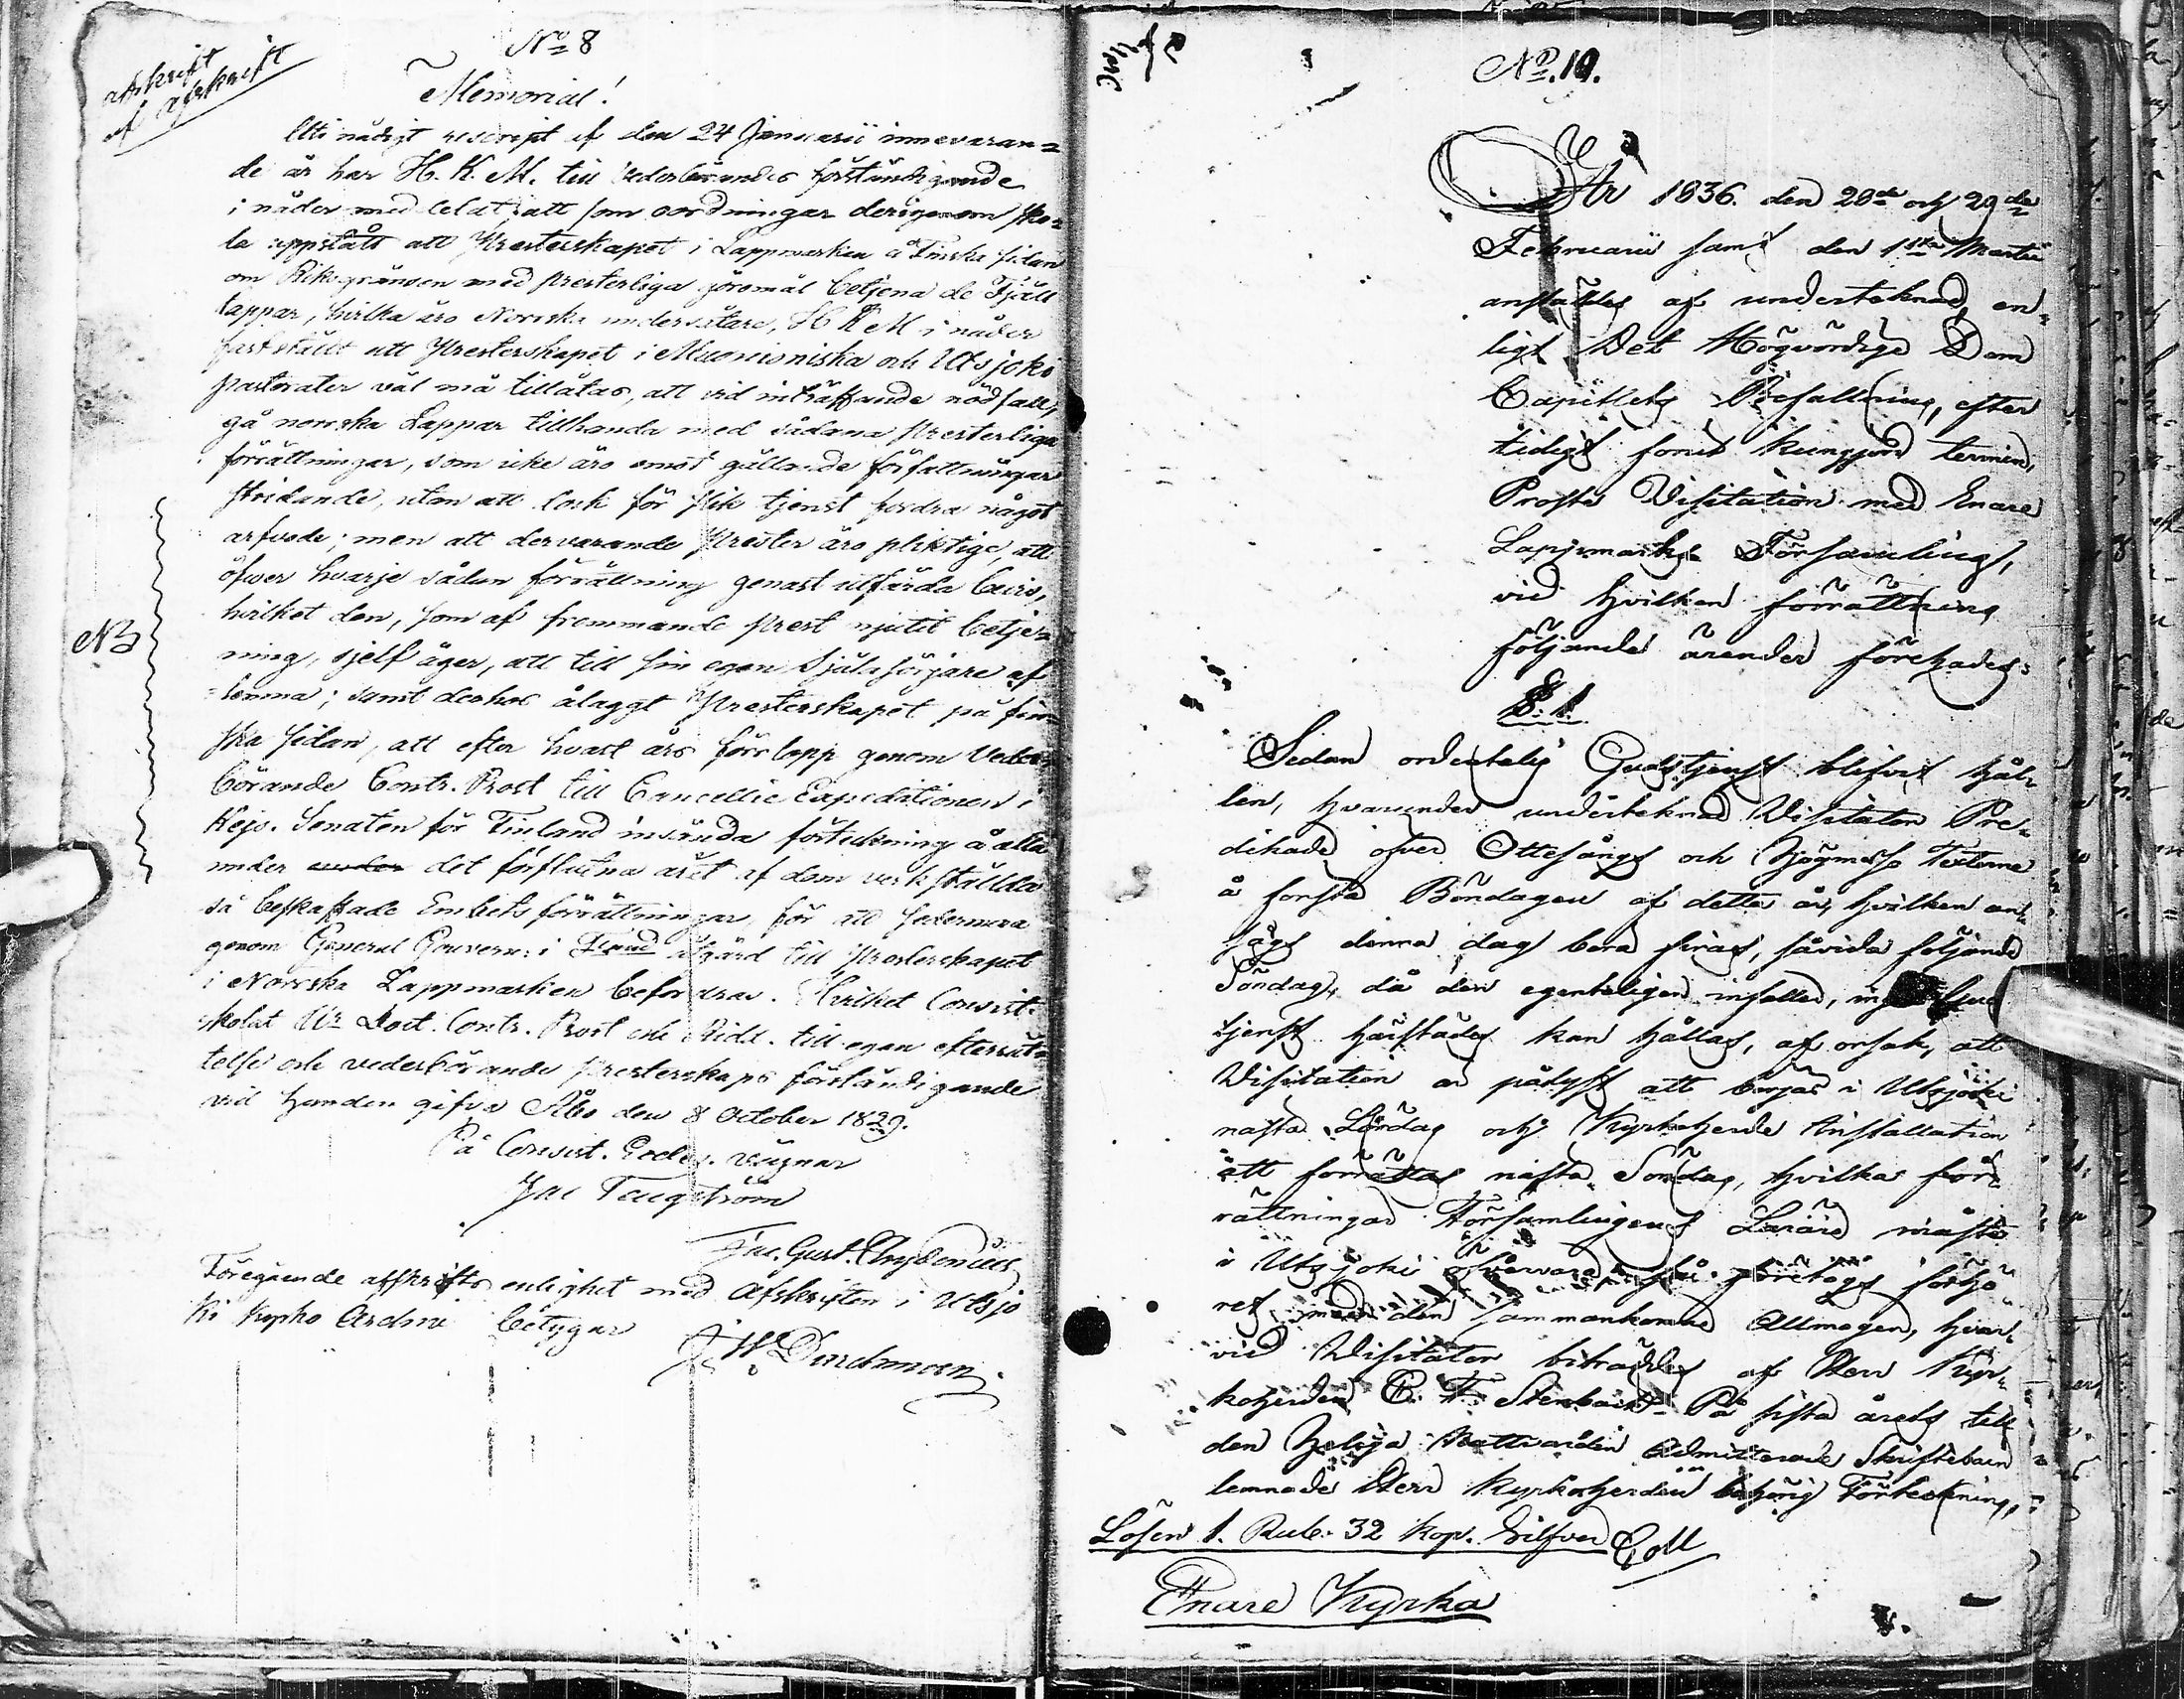 afskrift
af afskrift
No 8
Memorial!
Uti nådigt rescript af den 24 Januarii innevaran=
de år har H. K. M. till vederbörandes förståndigande
i nåder meddelat, att som oordningar derigenom sko=
la uppstått att Presterskapet i Lappmarken å Finska sidan
om Riksgränsen med presterliga göromål betjena de Fjäll
lappar, hvilka äro Norrska undersåtare, H K M i nåder
fastställt att Presterskapet i Muonioniska och Utsjoki
pastorater väl må tillåtas, att vid inträffande nödfall,
gå norrska Lappar tillhanda med sådana presterliga
förrättningar, som icke äro emot gällande författningar
stridande, utan att dock för slik tjenst fordra något
arfvode; men att dervarande Prester äro pliktige, att
öfwer hvarje sådan förrättning genast utfärda bevis,
hvilket den, som af frommande prest njutit betje=
NB
ning, sjelf äger, att till sin egen Själasörjare af
=lemna; samt derhos ålaggt Presterskapet på fin=
ska sidan, att efter hvart års förrlopp genom Veder=
börande Contr. Prost till Cancellie Expeditionen i
Kejs. Senaten för Finland insända förteckning å alla
under under det förflutna året af dem verkställda
så beskaffade Embets förrättningar, för att sedermera
genom General Gouvern: i Finnl åtgärd till Presterskapet
i Norrska Lappmarken befordras. Hvilket Consist.
skolat Hr Doct. Contr. Prost och Ridd. till egen efterrät=
telse och vederbörande presterskaps förståndigande
vid handen gifva Åbo den 8 October 1829.
På Consist. Eccles. vägnar
Jac Tengström
Jac. Gust. Chydenius
Föregående afskrifts enlighet med Afskriften i Utsjo
ki Kyrko Archive betygar
J W Durchman
No. 10.
År 1836. den 28de och 29de
Februarii samt den 1sta Martii
anställdes af undertecknad, en=
ligt Det Högvördige Dom
Capitlets Befallning, efter
tidigt förut kungjord termin,
Prosta Visitation med Enare
Lappmarks Församling,
vid hvilken förrättning
följande ärender förehades:
§. 1.
Sedan ordentelig Gudstjenst blifvit hål=
len, hvarunder undertecknad Visitator Pre=
dikade öfver Ottesångs och Högmesso Texterne
å första Böndagen af detta år, hvilken an=
sågs denna dag böra firas, såvida följande
Söndag, då den egenteligen infaller, ingen
tjenst härstädes kan hållas, af orsak, att
Visitation är pålyst att börjas i Utsjoki
nästa Lördag och Kyrkoherde Installation
att förrättas nästa Söndag, hvilka för=
rättningar Församlingens Lärare måste
i Utsjoki öfvervara företogs förhö=
ret med den sammankomne Allmogen, hvar=
vid Visitator biträddes af Herr Kyr=
koherden E. F. Stenbäck. På sista årets till
den Heliga Nattvarden Admitterade Skriftebarn
lemnade Herr Kyrkoherden behörig Förteckning,
Lösen 1. Rub: 32 Kop. Silfver
Enare Kyrka